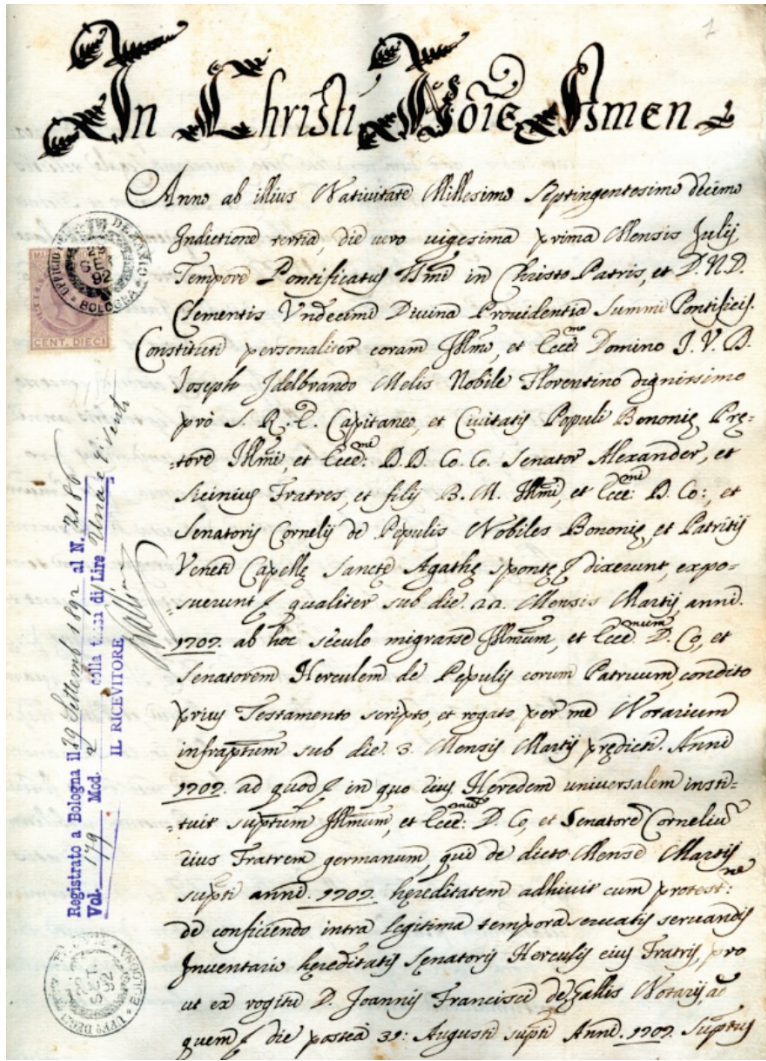 1
In Christi Noīe Amen
Anno ab illius Nativitate Millesimo Septingentesimo decimo
Indictione tertia, die vero vigesima prima Mensis Julij
Tempore Pontificatus Ssmi in Christo Patris, et D. N. D.
Clementis Undecimi Divina Providentia Summi Pontificis.
Constituti personaliter coram Illmo, et Ecce.mo Domino J. V. D.
Joseph Idelbrando Melis Nobile Florentino dignissimo
pro S. R. E. Capitaneo, et Civitatis Populi Bononię Pre-
-tore Illmi, et Ecce:mi D. D. Co. Co. Senator Alexander, et
Sicinius Fratres, et filij B. M. Illmi, et Ecce:mi D. Co:, et
Senatoris Cornelij de Pepulis Nobiles Bononię, et Patritij
Veneti Capellę Sanctę Agathę sponte dixerunt, expo-
-suerunt qualiter sub die 22. Mensis Martij anni.
1707. ab hoc sęculo migrasse Illmum, et Ecce:mum D. Co, et
Senatorem Herculem de Pepulis eorum Patruum, condito
prius Testamento scripto, et rogato per me Notarium
infraptum sub die 3. Mensis Martij prędicti Anni
1707. ad quod in quo eius Heredem universalem insti-
-tuit suptum Illmum, et Ecce:mum D. Co, et Senatorē Corneliū
eius Fratrem germanum, qui de dicto Mense Martij
supti anni. 1707. hęreditatem adhivit cum protest:ne
de conficiendo intra legitima tempora servatis servandis
Inventario hęreditatis Senatoris Herculis eius Fratris, pro
ut ex rogitu D. Joannis Francisci de Gallis Notarij, ad
quem die postea 31: Augusti supti Anni. 1707. suptus
UFFICIO
BOLOGNA
SET
92
CENT. DIECI
Registrato a Bologna il 29 Settemb 1892 al N. 2186
Vol. 179 Mod. 2 colla tassa di Lire Una e c. venti
IL RICEVITORE
SET.
92